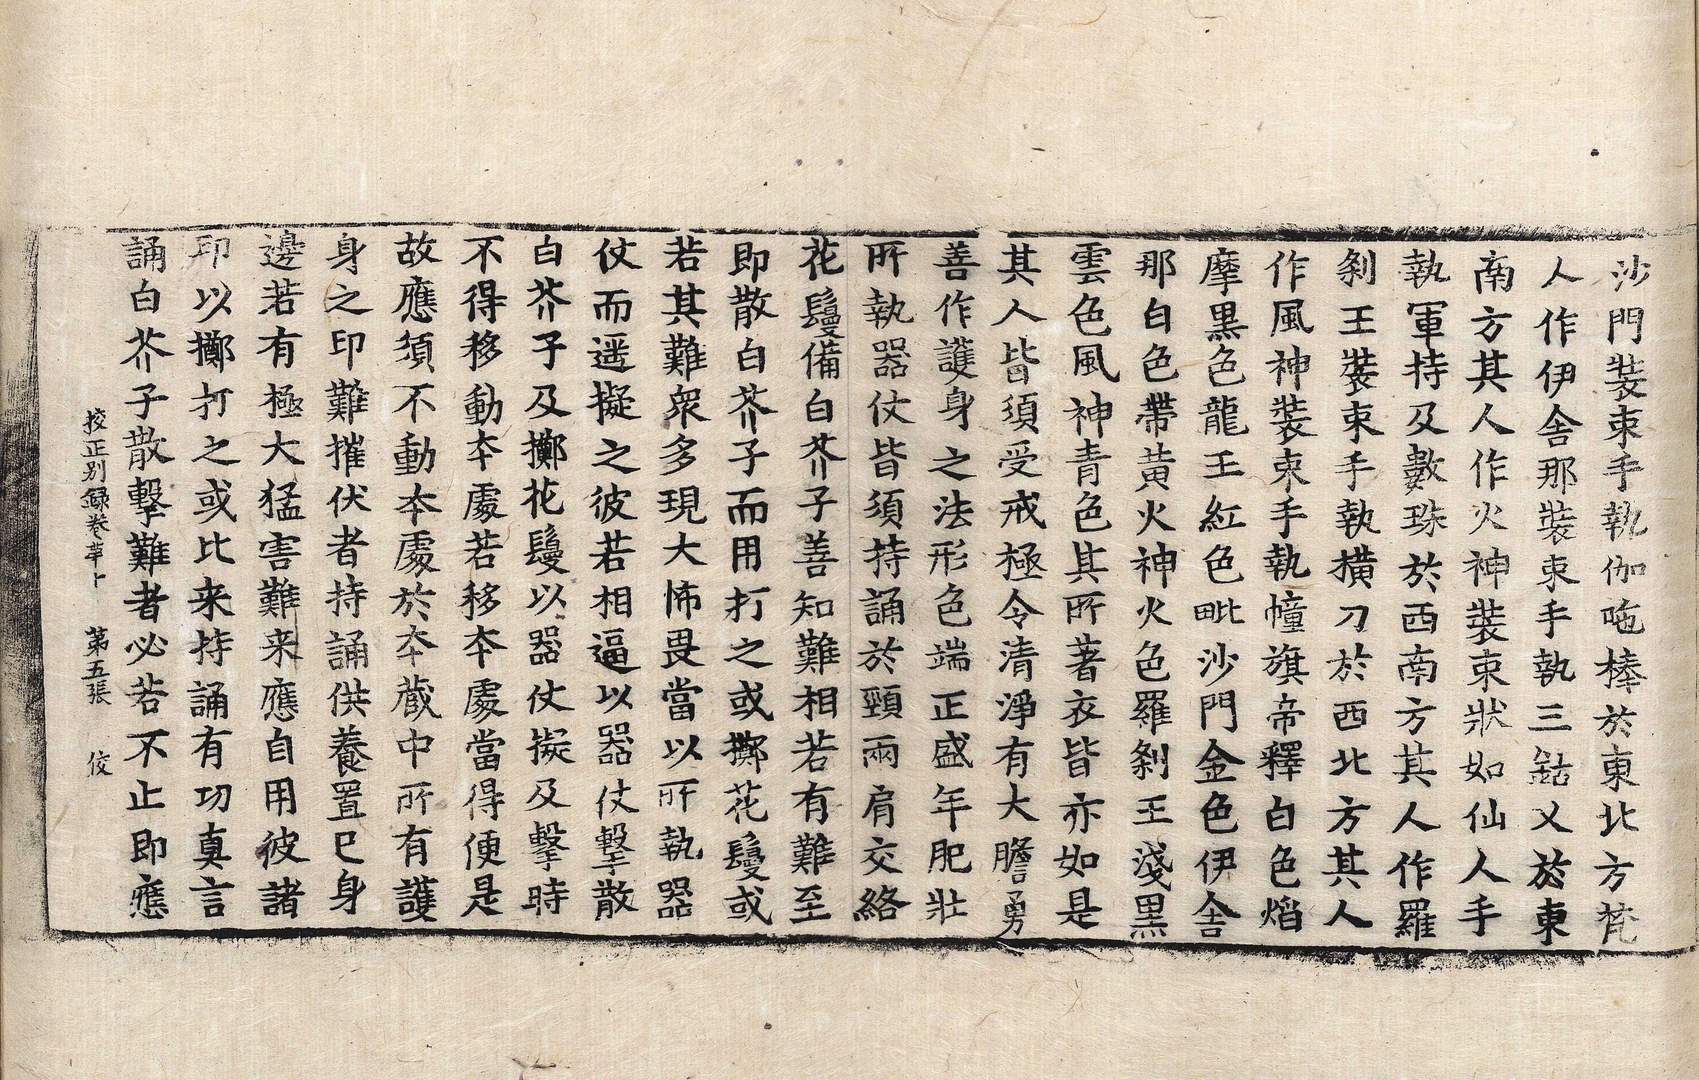 沙門裝束手執伽㖿棒於東北方其
人作伊舍那裝束手執三鈷叉於東
南方其人作火神裝束狀如仙人手
執軍持及數珠於西南方其人作羅
剎王裝束手執橫刀於西北方其人
作風神裝束手執幢旗帝釋白色焰
摩黑色龍王紅色毗沙門金色伊舍
那白色帶黃火神火色羅剎王淺黑
雲色風神青色其所著衣皆亦如是
其人皆須受戒極令清淨有大膽勇
善作護身之法形色端正盛年肥壯
所執器仗皆須持誦於頸兩肩交絡
花鬘備白芥子善知難相若有難至
即散白芥子而用打之或擲花鬘或
若其難衆多現大怖畏當以所執器
仗而遥擬之彼若相逼以器仗擊散
白芥子及擲花鬘以器仗擬及擊時
不得移動本處若移本處當得便是
故應須不動本處於本藏中所有護
身之印難摧伏者持誦供養置已身
邊若有極大猛害難来應自用彼諸
印以擲打之或比来持誦有功真言
誦白芥子散擊難者必若不止即應
挍正别録卷 第五張 佼